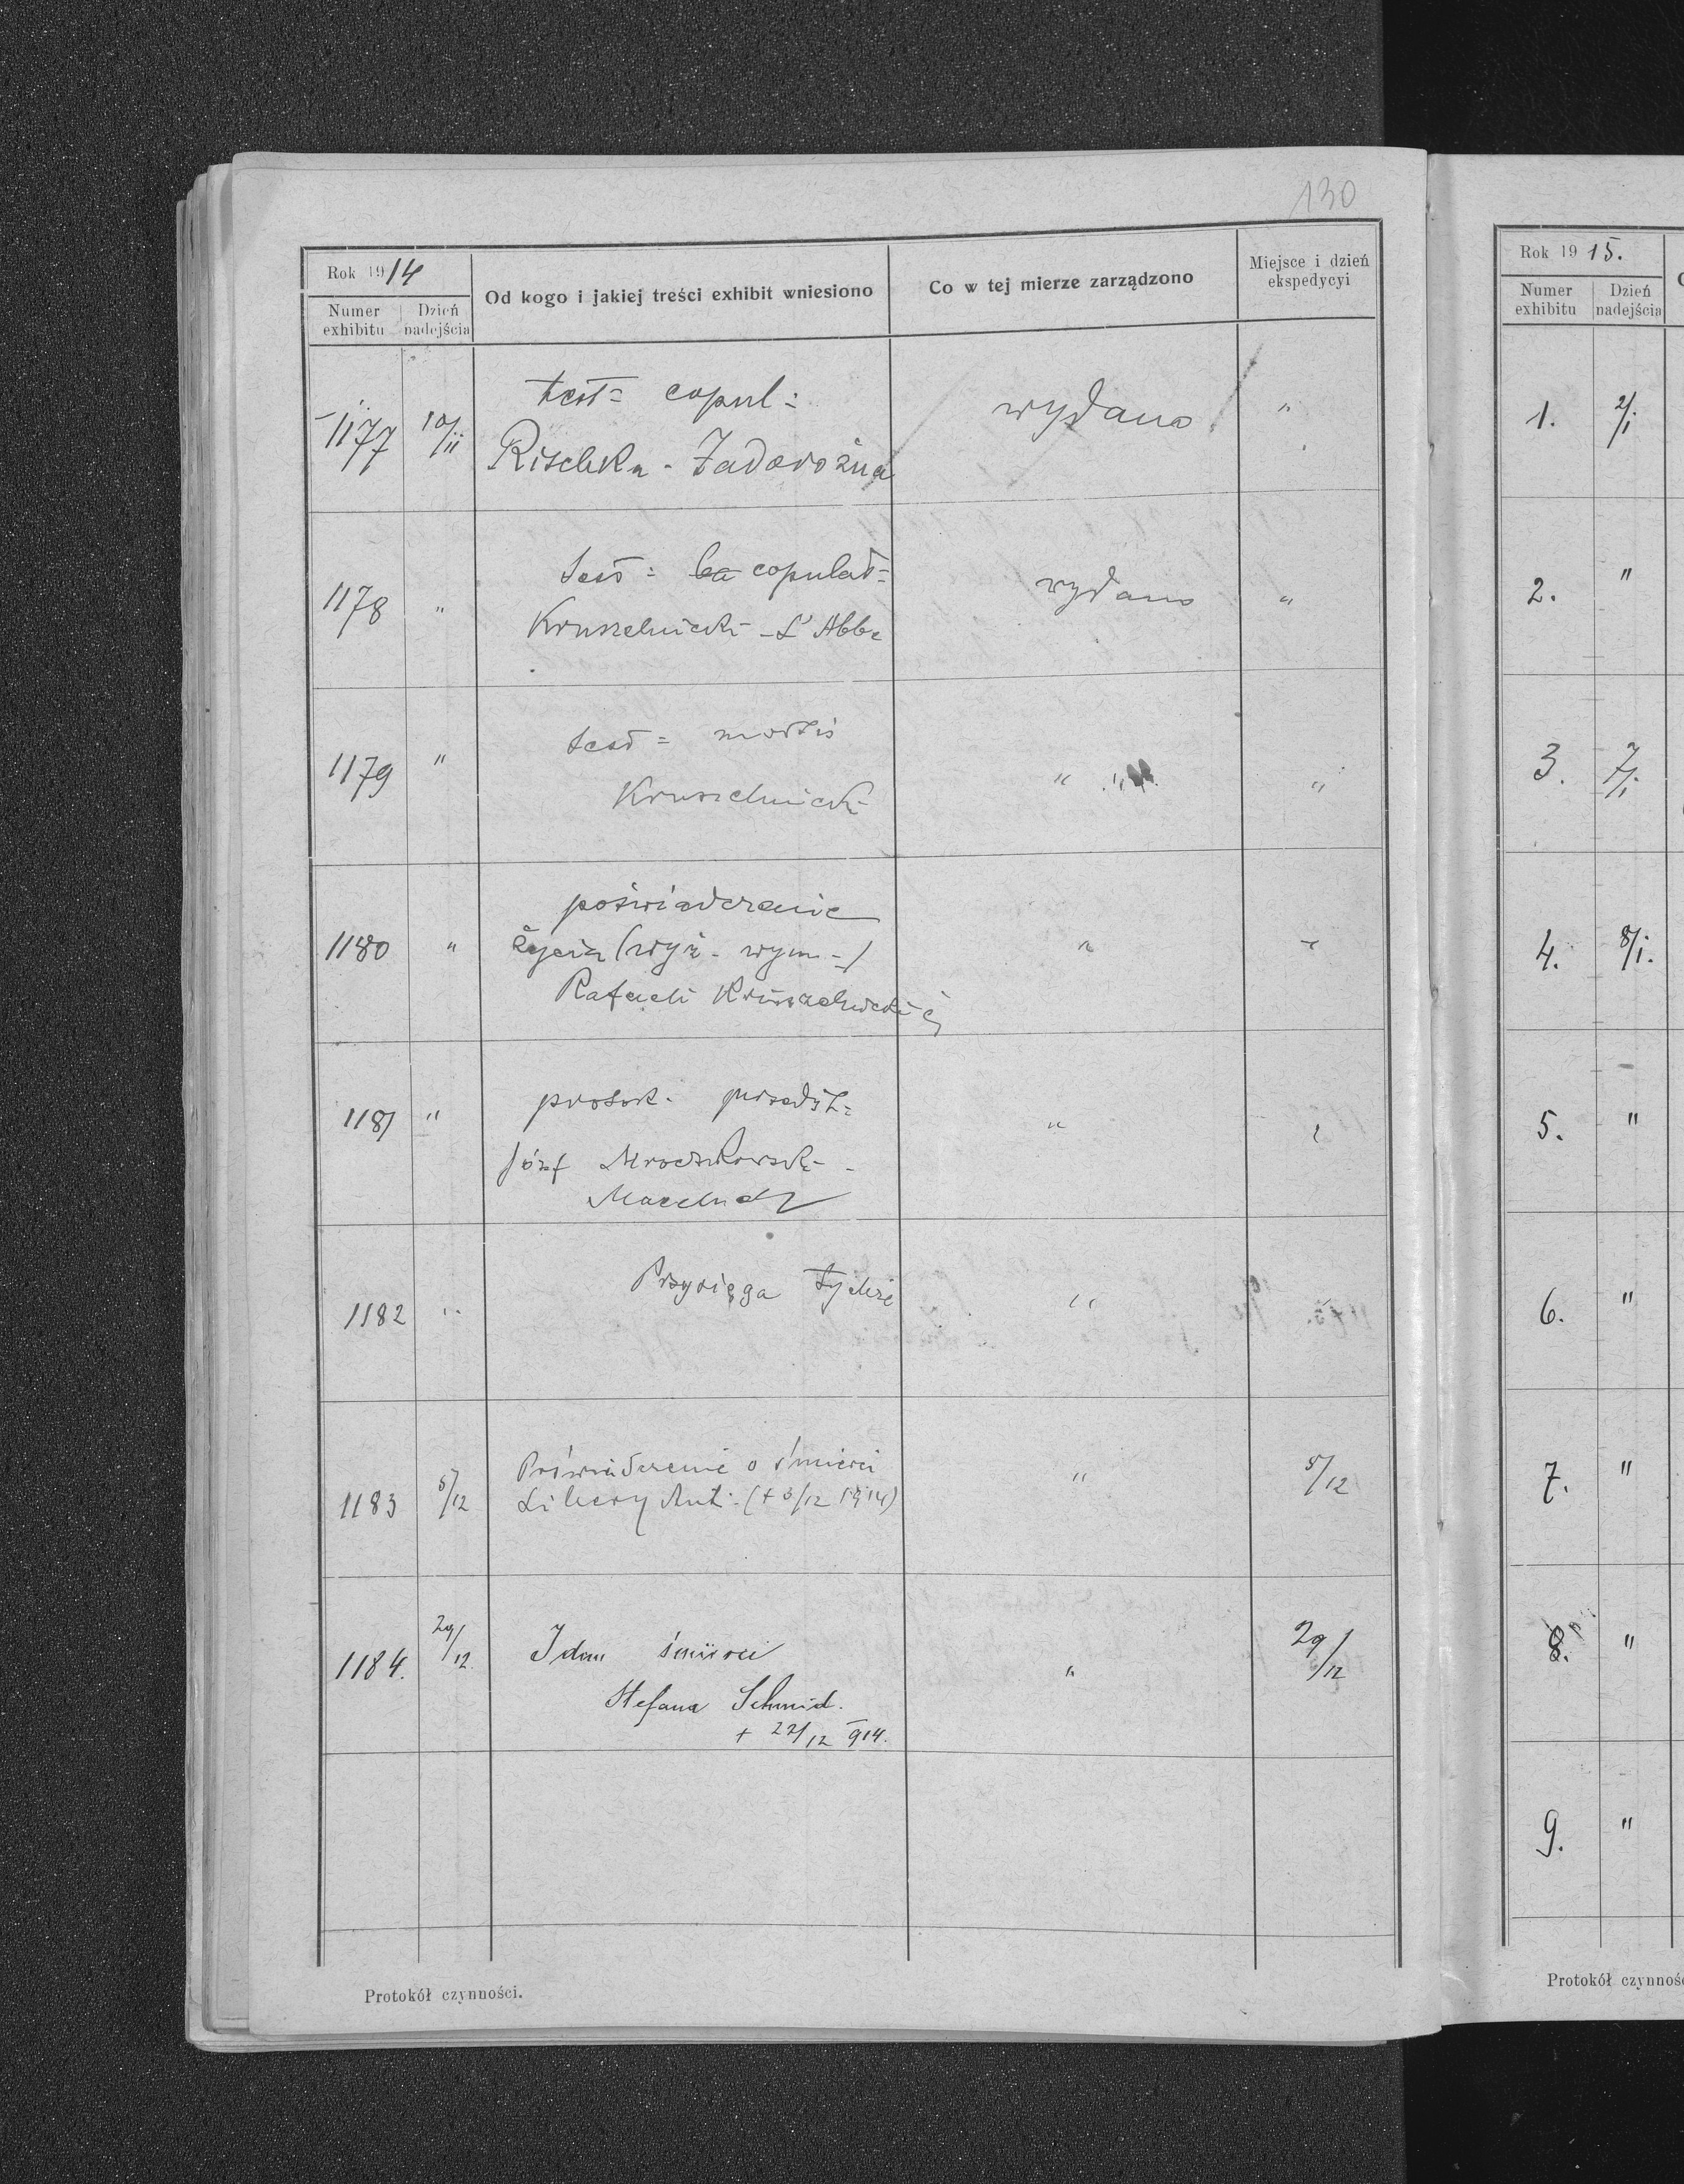 130
Rok 1914
Numer exhibitu
Dzień nadejścia
Od kogo i jakiej treści exhibit wniesiono
Co w tej mierze zarządzono
Miejsce i dzień ekspedycyi
1177 10/11 test= copul= wydano "
Rischka - Zadorożna
1178 " test= copulat= wydano "
Kruszelnicki - L'Abbe
1179 " test= mortis " "
Kruszelnicki
1180 " poświadczenie " "
życia (wyż. wym.)
Rafaeli Kruszelnickiej
1181 " protok. "
Józf Mroczkowski -
1182 " Przysięga tychże "
1183 5/12 Poświadczenie o śmierci " 5/12
Ant. (+ 3/12 1914)
1184. 29/12. Idem śmierci " 29/12
Stefana Schmid.
+ 22/12 914.
Protokół czynności.
Rok 1915.
Numer exhibitu
Dzień nadejścia
1. 2/1
2. "
3. 7/1
4. 8/1.
5. "
6. "
7. "
8. "
9. "
Protokół czynnoś